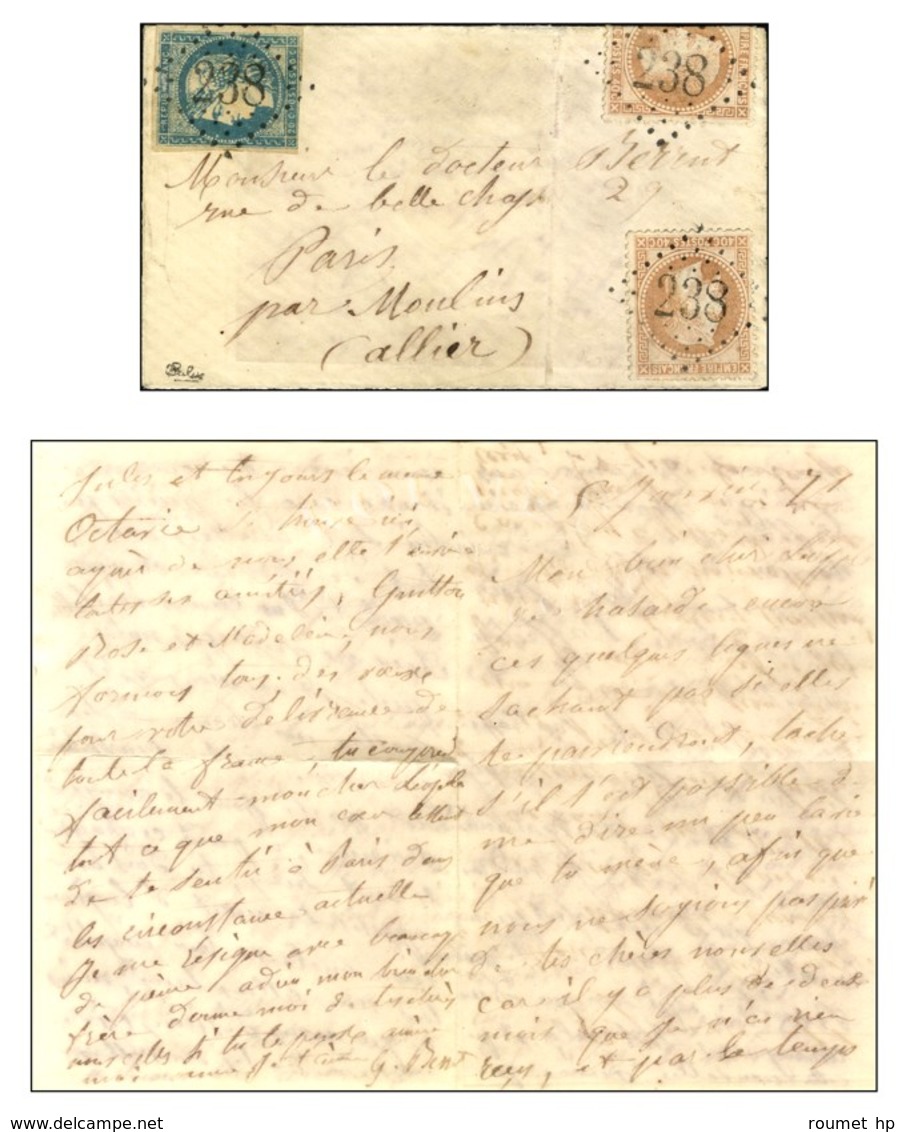 238
238
238
REPUB FRANC
EMPIRE FRANÇAIS
40C POSTES 40C
EMPIRE FRANÇAIS
Monsieur le docteur
rue de belle chasse 29
Paris
par Moulins
(allier)
Jules et toujours le même
Octavie
de nous elle t'envoie
toutes ses amitiés, Guitton
Rose et Madeleine, nous
formons tous des vœux
pour votre délivrance de
toute la france, tu comprend
facilement mon cher
tout ce que mon cœur
de te sentir à Paris dans
les circonstance actuelle
Je me résigne avec beaucoup
de peine adieu mon bien cher
frère donne moi de tes chères
nouvelles si tu le peux
G.
5 Janvier 71
Mon bien cher
je hasarde encore
ces quelques lignes ne
sachant pas si elles
te parviendront, tache
s'il t'est possible de
me dire un peu la vie
que tu mène, afin que
nous ne soyions pas privé
de tes chères nouvelles
car il y a plus de deux
mois que je n'ai rien
reçu, et par le temps
roumet hp